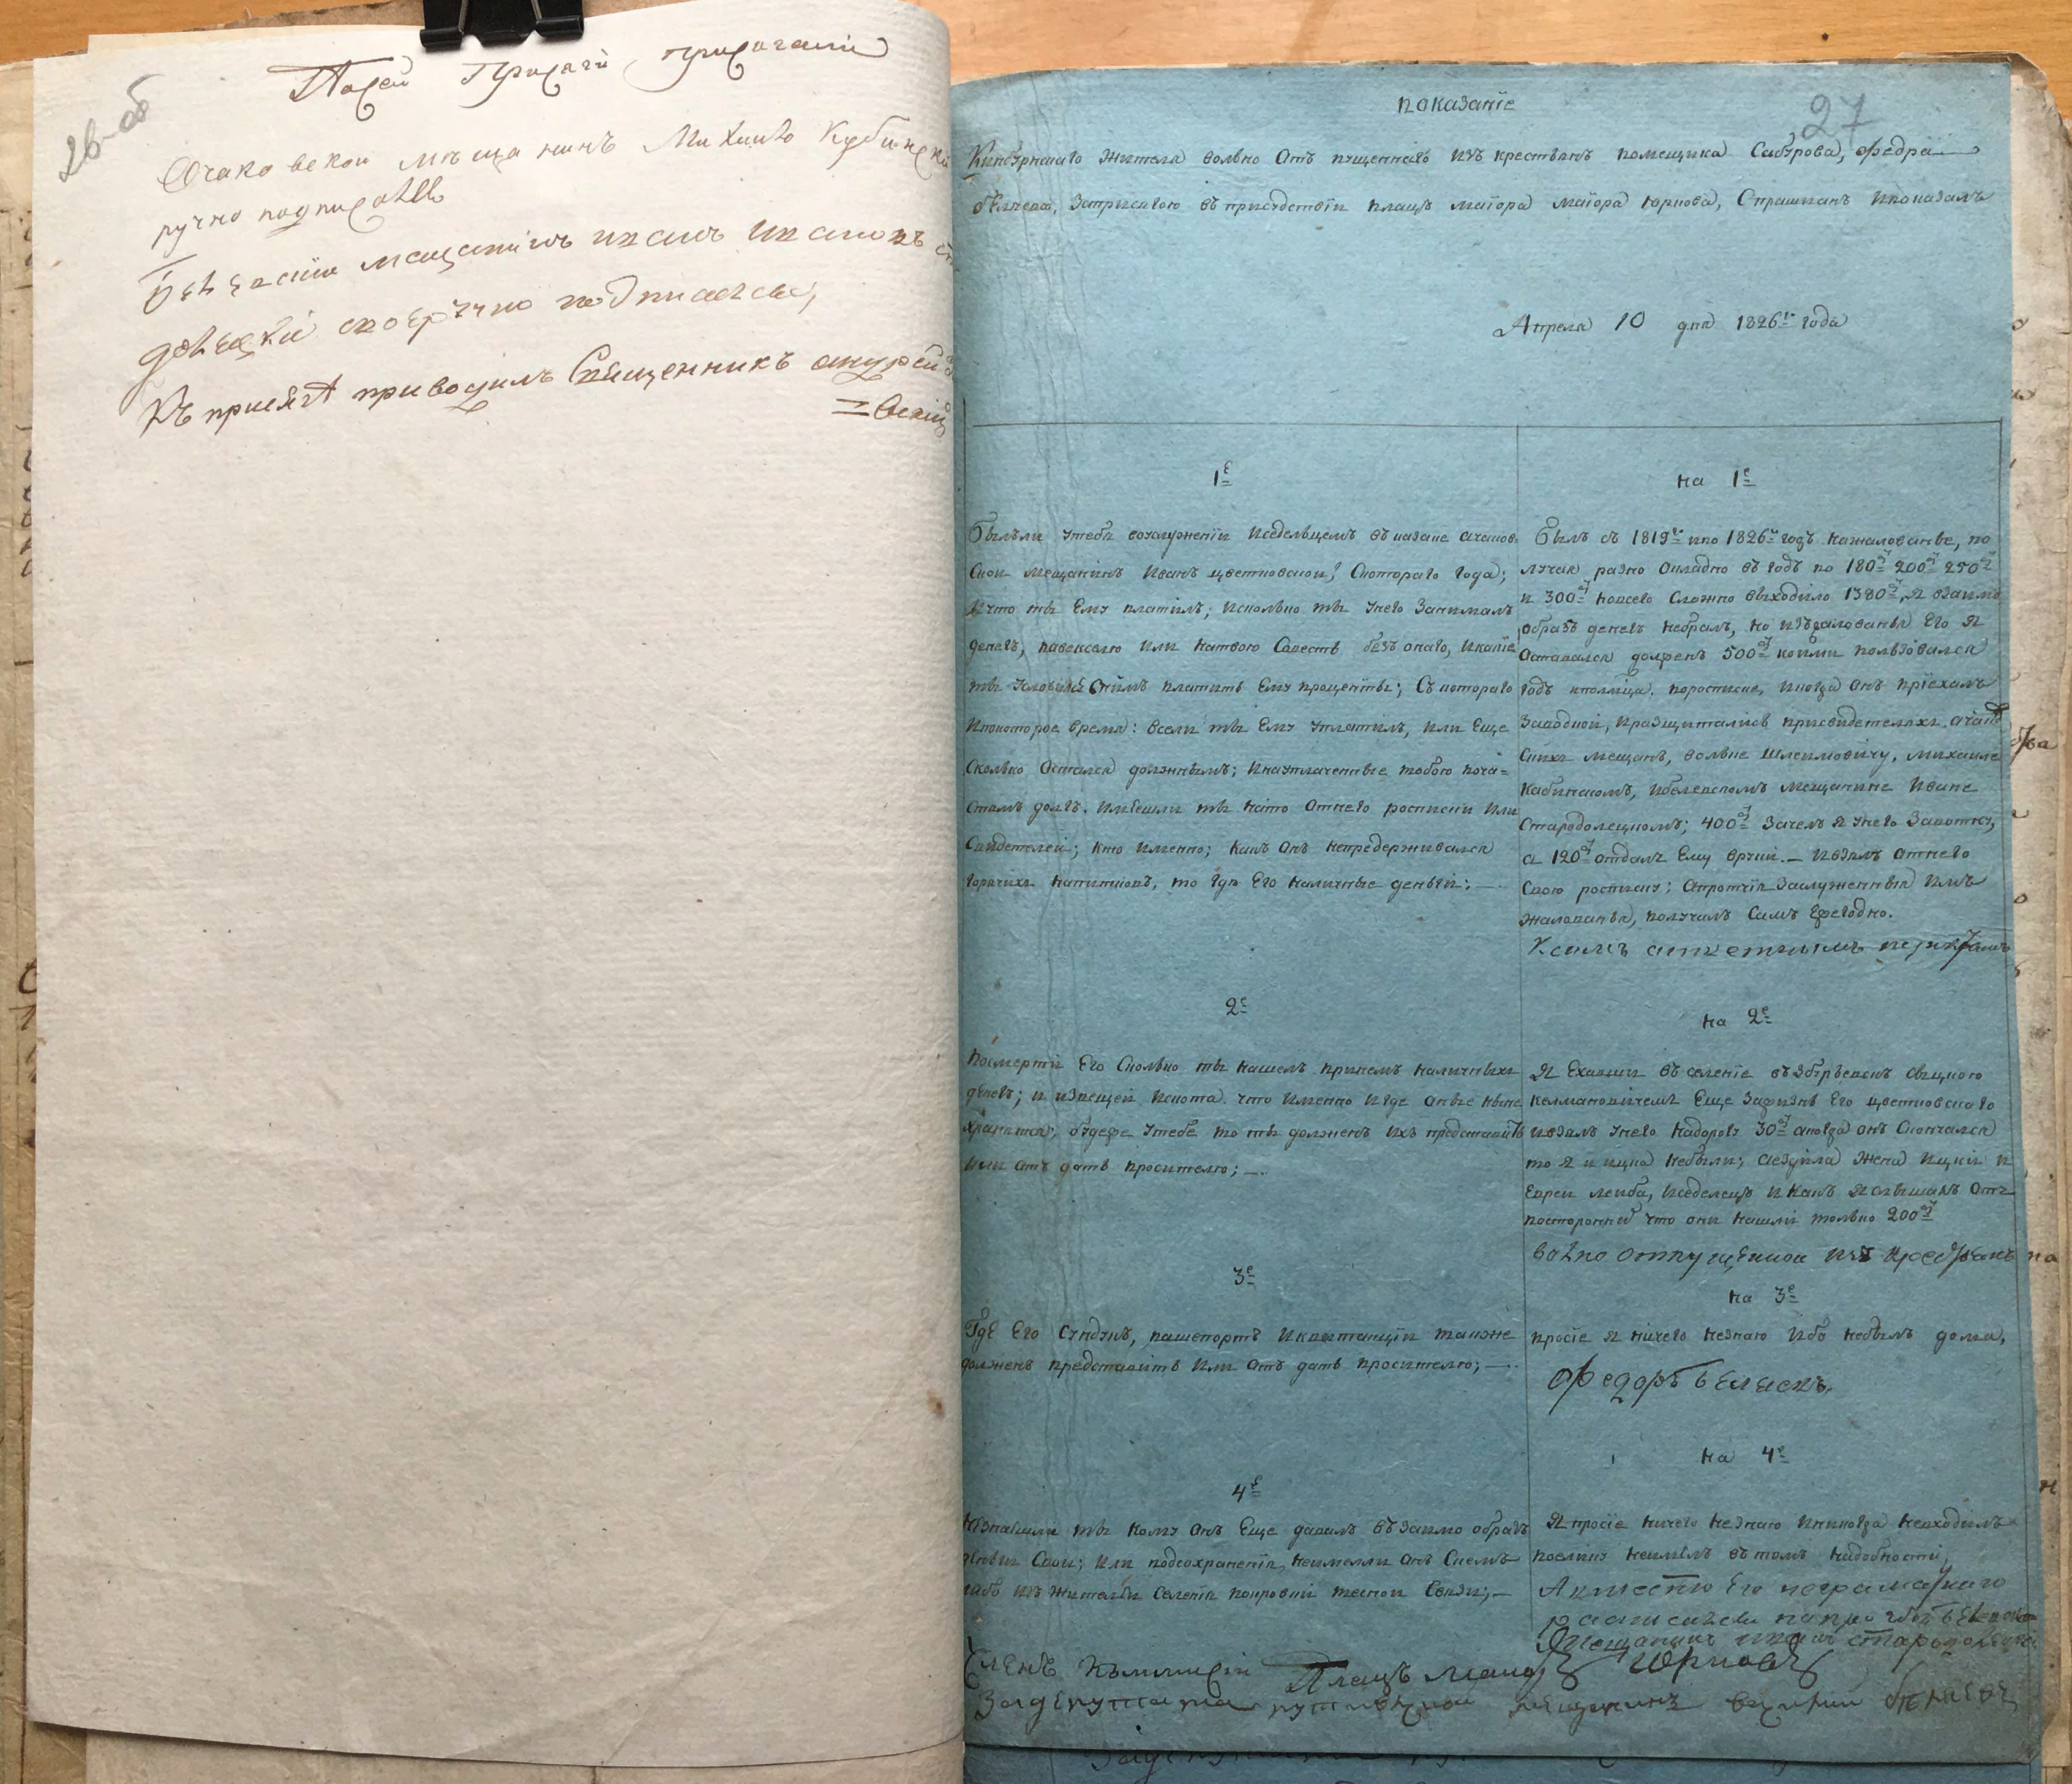 26-об
По сей Присяги присягали
Очаковской мѣщанинъ Михаило Кубинска
ручно подписался
мещанинъ иванъ ивановъ
долецкй своеручно подписался,
Къ присягѣ приводилъ Священникъ андрей
=вский
27
показанїе
Кинбурнскаго жителя вольно отъ пущеннаго изъ крестьянъ помещика Сабурова, Федра
бѣляева, за присягою въ присудствїи плацъ маїора маїора юрнова, Спрашиванъ и показалъ
Апреля 10 дня 1826го года
1е
былъ ли утебя воуслуженїи Иседельцемъ въ казане ачаков-
Скои мещанинъ Иванъ цветковской; Скотораго года;
и что ты Ему платилъ; исколько ты унего Занималъ
денегъ, повекселю или натвою Совесть безъ онаго, икакїе
ты условия Снимъ платить Ему проценты; Скотораго
Ипокоторое время: всели ты Ему уплатилъ, или Еще
Сколько Остался должнымъ; Инауплаченные тобою поча-
стямъ долгъ. имеешли ты нато Отнего росписки или
Свидетелей; кто Именно; какъ онъ непредерживался
горячихъ напитковъ, то где Его наличные деньги; —
на 1е
былъ съ 1819го ипо 1826й годъ нажалованье, по
лучая разно Окладно въ годъ по 180 200 250
и 300 новсего сложно выходило 1380, я взаимо
образъ денегъ небралъ, но изъ жалованья Его я
Оставался долженъ 500 коими пользовался
годъ иполмца. поросписке, икогда онъ прїехалъ
Заводной, иразщитались присвидетеляхъ ачаков
Скихъ мещанъ, вольке Шлеимовичу, михаиле
Кабинскомъ, ибелевскомъ мещанине Иване
Стародолецкомъ; 400 Зачелъ я унего Запотку,
а 120 отдалъ Ему вруки. — Ивзялъ отнего
Свою росписку; апротчїя Заслуженныя Имъ
жалованья, получалъ Самъ Ежегодно.
Ксимъ ответнымъ пунктамъ
2е
Посмерти Его Сколько ты нашелъ принемъ наличныхъ
денегъ; и извещей Искота. что Именно Игде оные ныне
хранятся, будеже утебе то ты долженъ ихъ представить
Или отъ дать просителю; —
на 2е
Я Ехавши въ селенїе въ збурьевскъ Сыцкою
келмановичемъ Еще Зажизнь Его цветковскаго
ивзялъ унего надорогу 30 акогда онъ Скончался
то я и ицка небыли; аездила Жена Ицки и
Евреи лейба, Иседелецъ И Какъ Я слышалъ отъ
посторонни что они нашли только 200
вольно отпущеннои изъ крестьянъ
3е
Где Его Сундукъ, пашепортъ Иквитанцїи также
долженъ представить Или отъ дать просителю; —
на 3е
Просїе Я ничего незнаю Ибо небылъ дома,
Федоръ беляевъ,
4е
Незнаешли ты кому онъ Еще давалъ въ Заимо образъ
деньги Свои; или подсохраненїи, неимелли онъ Снемъ
либо изъ жителей Селенїя покровки тесной Связи; —
на 4е
Я просїе ничего незнаю Иникогда невходилъ
поелику неимелъ въ томъ надобности,
Авместо Его неграматнаго
росписался попрозбѣ белевской
мещанинъ иванъ стародолецкй
Членъ Коммисїи Плацъ Маиоръ Юрновъ
Задепутата мещенинъ бѣляевъ